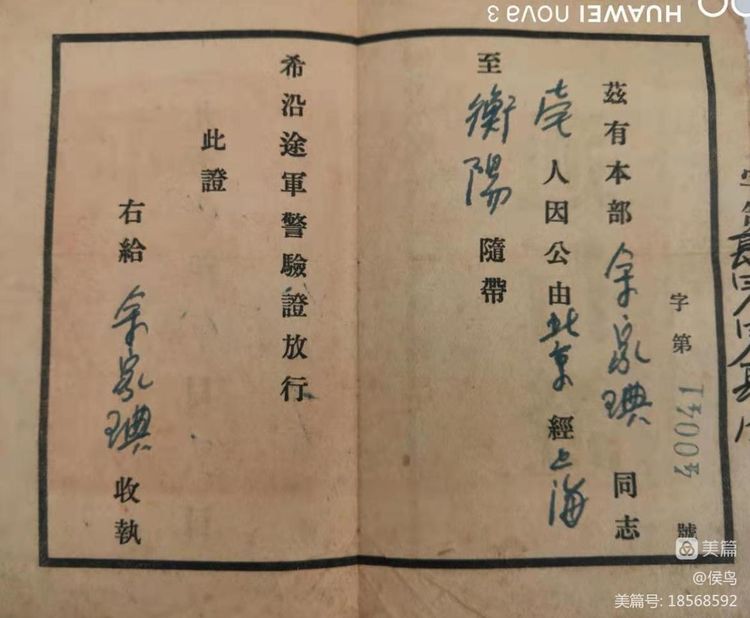 字第 13004 號
茲有本部 余家琠 同志
壱人因公由北京經上海
至衡陽 隨帶
希沿途軍警驗證放行
此證
右給 余家琠 收執
HUAWEI nova 3
美篇
@侯鸟
美篇号: 18568592